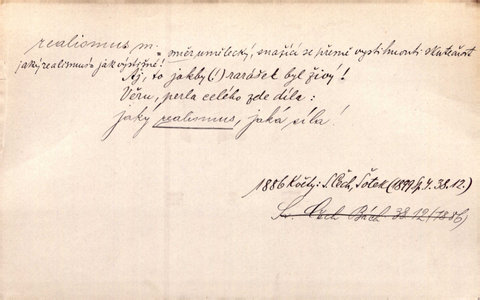 realismus m. směr umělecký, snažící se přímě vystihnouti skutečnost
jaký realismus jak výstižné!
Aj, to jakby (!) rarášek byl živý!
Věru, perla celého zde díla:
jaký realismus, jaká síla!
1886 Květy: S. Čech, Šotek (1899) 4. 38.12.)
Sv. Čech Bách. 38.12 (1886)